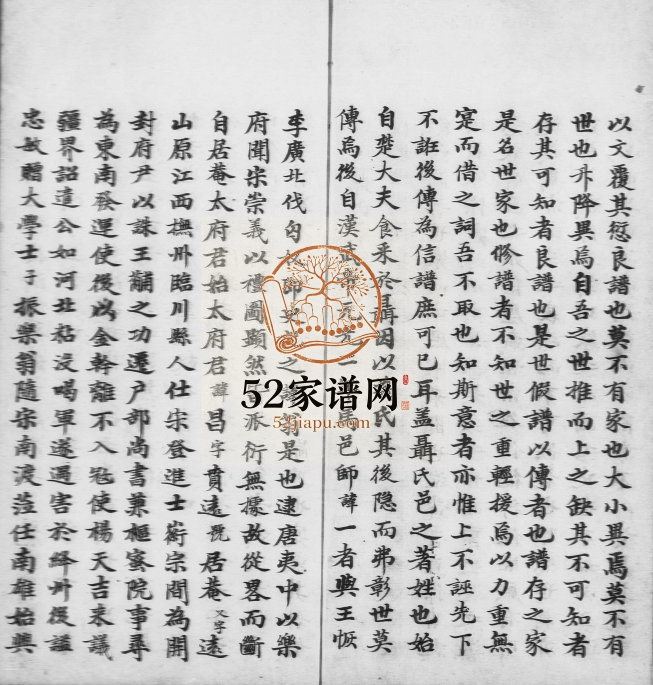 以文覆其愆良譜也莫不有家也大小異焉莫不有
世也升降異焉自吾之世推而上之缺其不可知者
存其可知者良譜也是世假譜以傳者也譜存之家
是名世家也修譜者不知世之重輕援焉以力重無
寔而借之詞吾不取也知斯意者亦惟上不誣先下
不誑後傳為信譜庶可已耳盖聶氏邑之著姓也始
自楚大夫食采於聶因以氏其後隐而弗彰世莫
傳焉後自漢武一邑師諱一者與王恢
李廣北伐匈之是也逮唐夷中以樂
府聞宋崇義以禮圖顯然派衍無據故從畧而斷
自居菴太府君始太府君諱昌字賁遠號居菴又字遠
山原江西撫州臨川縣人仕宋登進士銜宗間為開
封府尹以誅王黼之功遷户部尚書兼樞宻院事尋
為東南發運使後以金幹離不入冦使楊天吉来議
疆界詔遣公如河北粘没喝軍遂遇害於絳州後謚
忠敏贈大學士子振樂翁隨宋南渡蒞任南雄始興
52家谱网
52jiapu.com